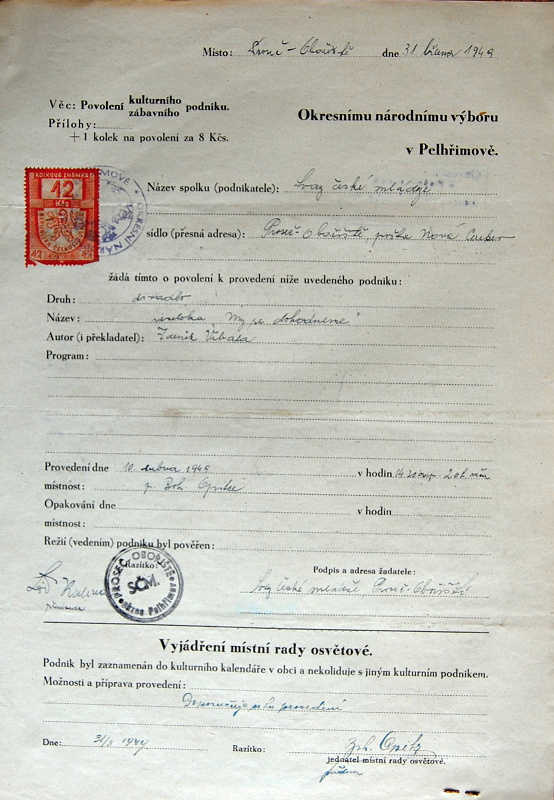 Místo: Proseč-Obořiště dne 31. března 1949
Věc: Povolení kulturního zábavního podniku.
Přílohy:
+1 kolek na povolení za 8 Kčs.
Okresnímu národnímu výboru
v Pelhřimově.
KOLKOVÁ ZNÁMKA
12
Kčs
Název spolku (podnikatele): Svaz české mládeže
sídlo (přesná adresa): Proseč-Obořiště, pošta Nová Cerekev
žádá tímto o povolení k provedení níže uvedeného podniku:
Druh: divadlo
Název: veselohra „My se dohodneme"
Autor (i překladatel): Zdeněk
Program:
Provedení dne 10. dubna 1949 v hodin 14.30
místnost: p. Boh. Opitz
Opakování dne v hodin
místnost:
Režií (vedením) podniku byl pověřen:
Razítko:
Podpis a adresa žadatele:
PROSEČ OBOŘIŠTĚ
SČM.
Svaz české mládeže Proseč-Obořiště
Vyjádření místní rady osvětové.
Podnik byl zaznamenán do kulturního kalendáře v obci a nekoliduje s jiným kulturním podnikem.
Možnosti a příprava provedení:
Doporučuje se ku provedení
Dne: 31/3 1949 Razítko: Opitz
jednatel místní rady osvětové.